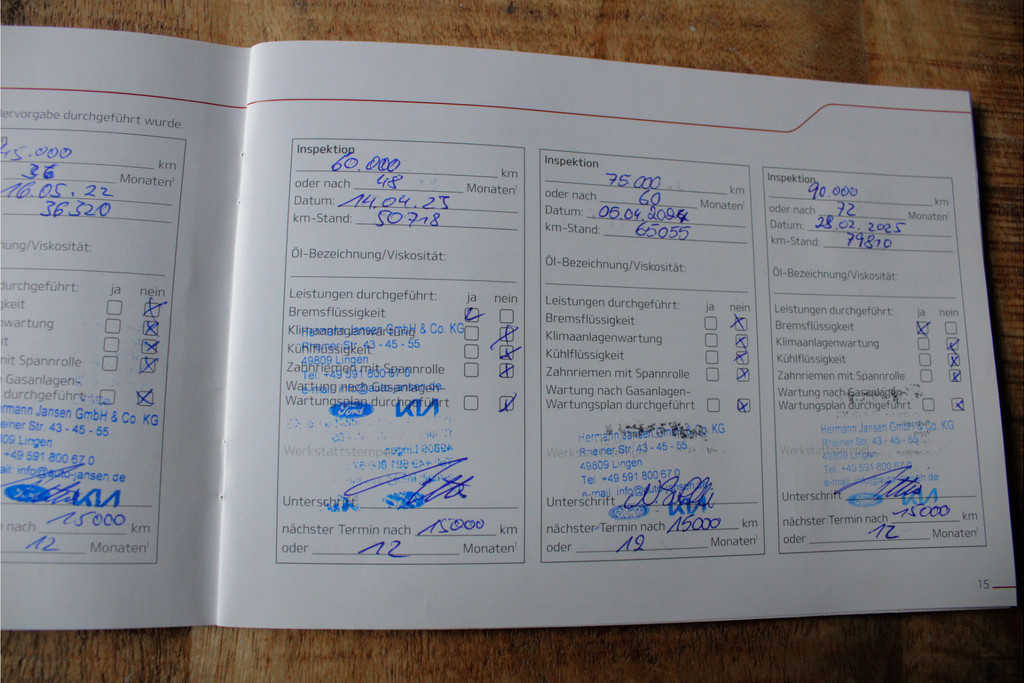 ervorgabe durchgeführt wurde.
45.000 km
36 Monaten¹
16.05.22
36320
ung/Viskosität:
durchgeführt: ja nein
gkeit
nwartung
it
mit Spannrolle
Gasanlagen-
durchgeführt
rmann Jansen GmbH & Co. KG
einer Str. 43 - 45 - 55
809 Lingen
+49 591 800 67 0
ail: info@auto-jansen.de
Ford KIA
nach 15000 km
12 Monaten¹
Inspektion
60.000 km
oder nach 48 Monaten¹
Datum: 14.04.23
km-Stand: 50718
Öl-Bezeichnung/Viskosität:
Leistungen durchgeführt: ja nein
Bremsflüssigkeit
Klimaanlagenwartung
Hermann Jansen GmbH & Co. KG
Rheiner Str. 43 - 45 - 55
Kühlflüssigkeit
49809 Lingen
Zahnriemen mit Spannrolle
Tel: +49 591 800 67 0
Wartung nach Gasanlagen-
e-mail: info@auto-jansen.de
Wartungsplan durchgeführt
Ford KIA
Werkstattstempel
Unterschrift
nächster Termin nach 15000 km
oder 12 Monaten¹
Inspektion
75.000 km
oder nach 60 Monaten¹
Datum: 05.04.2024
km-Stand: 65055
Öl-Bezeichnung/Viskosität:
Leistungen durchgeführt: ja nein
Bremsflüssigkeit
Klimaanlagenwartung
Kühlflüssigkeit
Zahnriemen mit Spannrolle
Wartung nach Gasanlagen-
Wartungsplan durchgeführt
Hermann Jansen GmbH & Co. KG
Rheiner Str. 43 - 45 - 55
49809 Lingen
Tel: +49 591 800 67 0
e-mail: info@auto-jansen.de
Unterschrift
Ford KIA
nächster Termin nach 15000 km
oder 12 Monaten¹
Inspektion
90.000 km
oder nach 72 Monaten¹
Datum: 28.02.2025
km-Stand: 79810
Öl-Bezeichnung/Viskosität:
Leistungen durchgeführt: ja nein
Bremsflüssigkeit
Klimaanlagenwartung
Kühlflüssigkeit
Zahnriemen mit Spannrolle
Wartung nach Gasanlagen-
Wartungsplan durchgeführt
Hermann Jansen GmbH & Co. KG
Rheiner Str. 43 - 45 - 55
49809 Lingen
Tel: +49 591 800 67 0
e-mail: info@auto-jansen.de
Unterschrift
Ford KIA
nächster Termin nach 15000 km
oder 12 Monaten¹
15